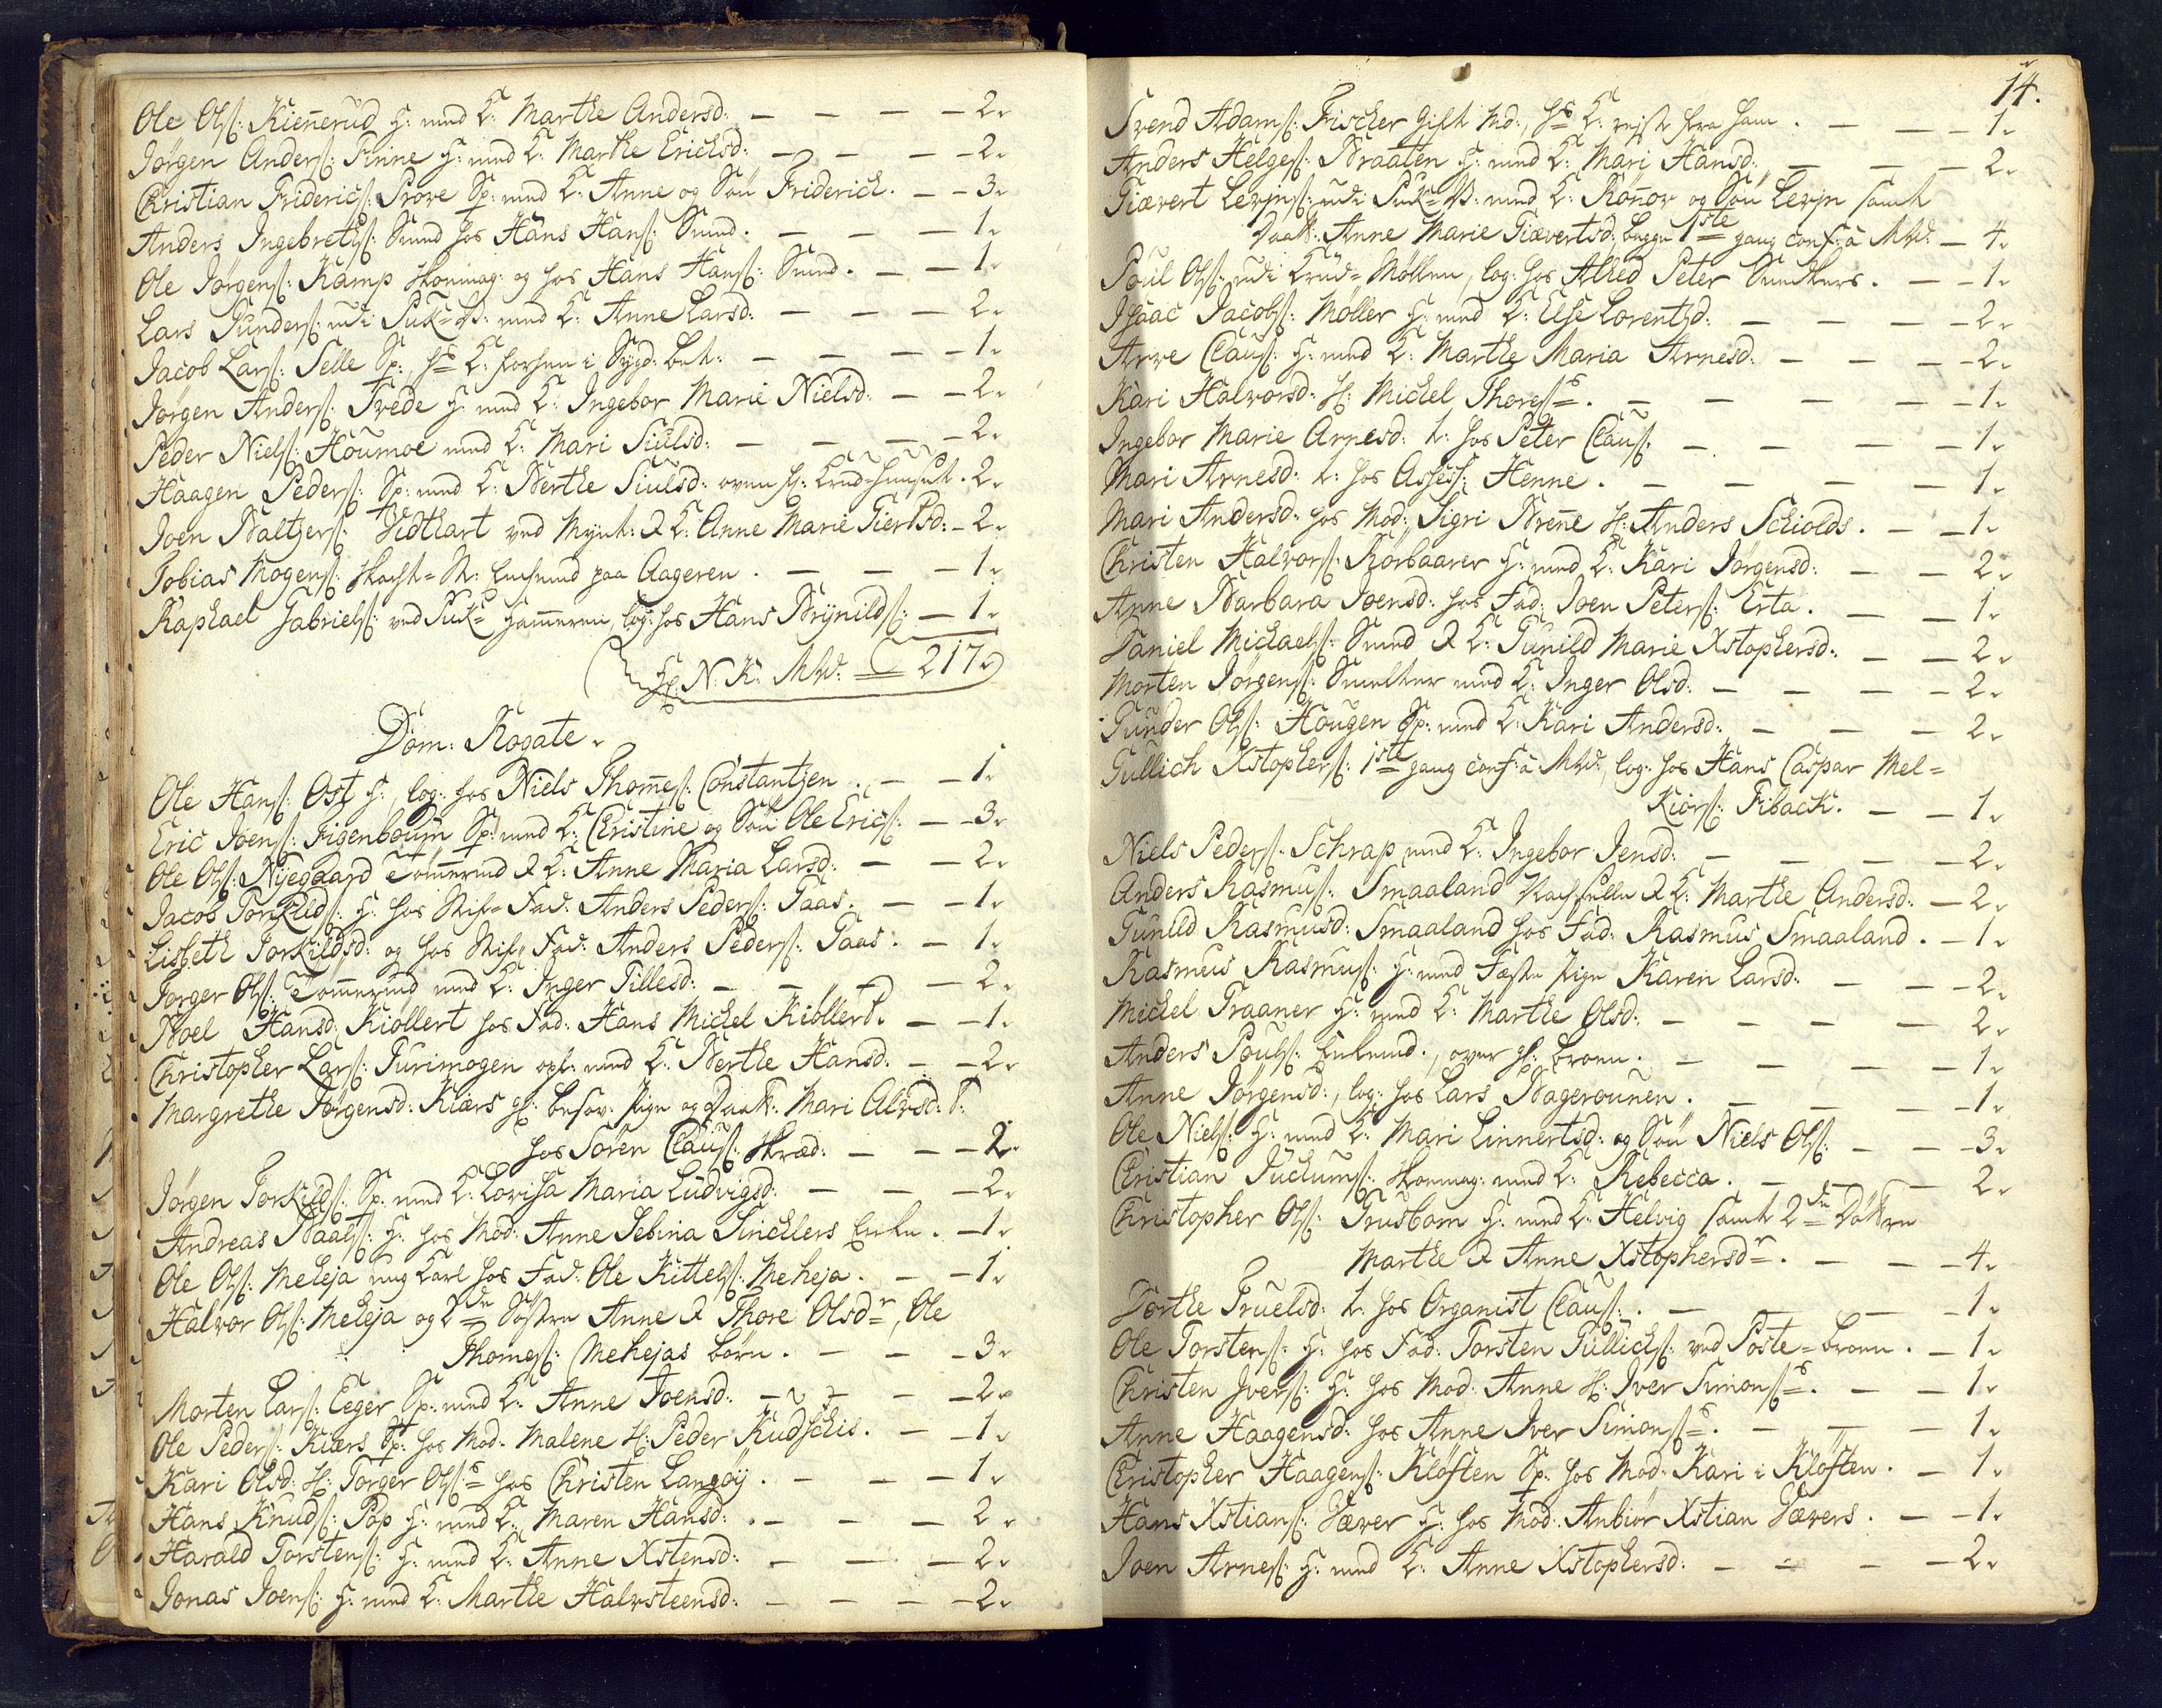 Ole Ols: Kiennerud H: med K: Marthe Andersd: — — — — 2.
Jørgen Anders: Finne H: med K: Marthe Erichsd: — — — — 2.
Christian Friderics: Prove Sp: med K: Anne og Søn Friderich. — — 3.
Anders Ingebreths: Smed hos Hans Hans: Smed. — — — 1.
Ole Jørgens: Kamp skomag: og hos Hans Hans: Smed. — — 1.
Lars Gunders: udi Puk-V: med K: Anne Larsd: — — — 2.
Jacob Lars: Selle Sp:, hs K: forhen i Sygd: bet: — — — — 1.
Jørgen Anders: Trede H: med K: Ingebor Marie Nielsd: — — 2.
Peder Niels: Houmoe med K: Mari Siulsd: — — — — 2.
Haagen Peders: Sp: med K: Berthe Siulsd: oven f: 2.
Joen Baltzers: Vidthart ved Mynt: & K: Anne Marie Giertsd: — 2.
Tobias Mogens: Enkemand paa Aageren. — — — 1.
Raphael Gabriels: ved Puk-hammeren, log: hos Hans Brynilds: — 1.
N: K: 217.
Dom: Rogate.
Ole Hans: Ost H:, log: hos Niels Thomes: Constantzen. — — 1.
Eric Joens: Figenboum Sp: med K: Christine og Søn Ole Erics: — — 3.
Ole Ols: Nyegaard Tømmermd & K: Anne Maria Larsd: — — 2.
Jacob Torkilds: H: hos Stif-Fad: Anders Peders: Gaas. — — 1.
Lisbeth Torkildsd: og hos Stif-Fad: Anders Peders: Gaas: — 1.
Torger Ols: Tømmermd med K: Inger Tillesd: — — — — 2.
Boel Hansd: Kiøllert hos Fad: Hans Michel Kiøllert. — — 1.
Christopher Lars: Gurimogen med K: Berthe Hansd: — — 2.
Margrethe Jørgensd: Kiærs gl: besov: Pige og Daat: Mari Alvsd:
hos Søren Claus: Skræd: — — — 2.
Jørgen Torkilds: Sp: med K: Lovisa Maria Ludvigsd: — — — 2.
Andreas Paals: H: hos Mod: Anne Sebina Sincklers Enke. — 1.
Ole Ols: Meheja ung Karl hos Fad: Ole Kittels: Meheja. — — 1.
Halvor Ols: Meheja og 2de Søstre Anne & Thore Olsdr, Ole
Thomes: Mehejas børn. — — — 3.
Morten Lars: Eeger Sp: med K: Anne Joensd: — — — — 2.
Ole Peders: Kiærs Sp: hos Mod: Malene H: Peder Kudskis. — — 1.
Kari Olsd: H: Torger Ols: hos Christen Langøy. — — — 1.
Hans Knuds: Pop H: med K: Maren Hansd: — — — 2.
Harald Torstens: H: med K: Anne Xstensd: — — — 2.
Jonas Joens: H: med K: Marthe Halvsteensd: — — — — 2.
14.
Svend Adams: Fischer gift Md:, hs K: reist fra ham. — — — 1.
Anders Helges: Braaten H: med K: Mari Hansd: — — — 2.
Giævert Levins: udi Puk-V: med K: Ronnov og Søn Levin samt
Daat: Anne Marie Giævertsd: begge 1ste gang conf: — 4.
Poul Ols: udi Krud-Møllen, log: hos Alhed Peter Smelters. — — 1.
Isaac Jacobs: Møller H: med K: Else Lorentzd: — — — — 2.
Arve Claus: H: med K: Marthe Maria Arnesd: — — — — 2.
Kari Halvorsd: H: Michel Thores: — — — — — 1.
Ingebor Marie Arnesd: t: hos Peter Claus: — — — — 1.
Mari Arnesd: t: hos Assess: Henne. — — — — — 1.
Mari Andersd: hos Mod: Sigri Brenne H: Anders Schiolds. — — 1.
Christen Halvors: Rørbaarer H: med K: Kari Jørgensd: — — 2.
Anne Barbara Joensd: hos Fad: Joen Peters: Erta. — — 1.
Daniel Michaels: Smed & K: Gunild Marie Xstophersd: — — 2.
Morten Jørgens: Smelter med K: Inger Olsd: — — — — 2.
Gunder Ols: Hougen Sp: med K: Kari Andersd: — — — 2.
Gullich Xstophers: 1ste gang conf: log: hos Hans Caspar Mel-
kiørs: Fiback. — — 1.
Niels Peders: Schrap med K: Ingebor Jensd: — — — — 2.
Anders Rasmus: Smaaland & K: Marthe Andersd: — 2.
Gunild Rasmusd: Smaaland hos Fad: Rasmus Smaaland. — 1.
Rasmus Rasmus: H: med Fæste Pige Karen Larsd: — — — 2.
Michel Traaner H: med K: Marthe Olsd: — — — — 2.
Anders Pouls: Enkemd:, over gl: broen. — — — — 1.
Anne Jørgensd:, log: hos Lars Bagerovnen. — — — 1.
Ole Niels: H: med K: Mari Linnertsd: og Søn Niels Ols: — — — 3.
Christian Juchums: skomag: med K: Rebecca. — — — 2.
Christopher Ols: Grusbom H: med K: Helvig samt 2de Døttre
Marthe & Anne Xstophersdr. — — — 4.
Dorthe Truelsd: t: hos Organist Claus: — — — 1.
Ole Torstens: H: hos Fad: Torsten Gullichs: ved Poste-broen. — 1.
Christen Ivers: H: hos Mod: Anne H: Iver Simons: — — 1.
Anne Haagensd: hos Anne Iver Simons: — — — 1.
Christopher Haagens: Kløften Sp: hos Mod: Kari i Kløften. — 1.
Hans Xstians: Væver H: hos Mod: Anbiør Xstian Vævers. — — 1.
Joen Arnes: H: med K: Anne Xstophersd: — — — — 2.